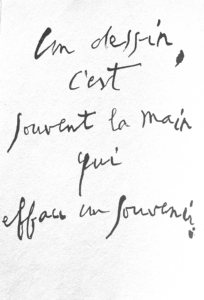 Un dessin,
c'est
souvent la main
qui
efface un souvenir.